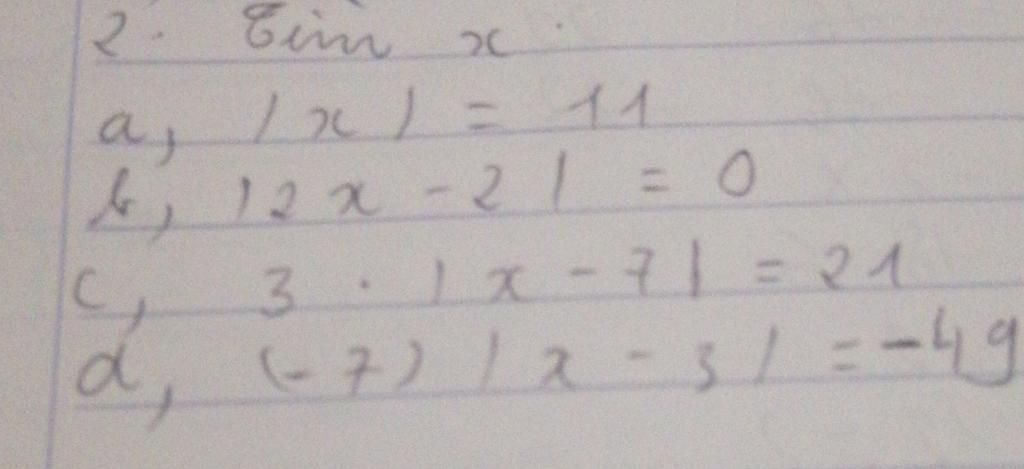 2. Tìm x
a, |x| = 11
b, |2x - 2| = 0
c, 3 . |x - 7| = 21
d, (-7) |x - 3| = -49